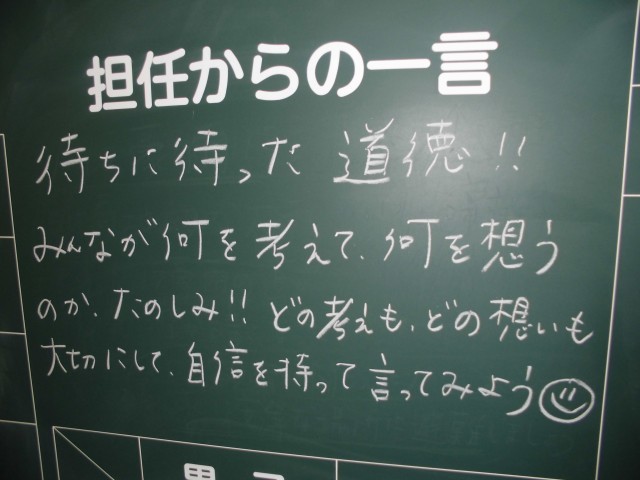 担任からの一言
待ちに待った 道徳!!
みんなが何を考えて、何を想う
のか、たのしみ!! どの考えも、どの想いも
大切にして、自信を持って言ってみよう